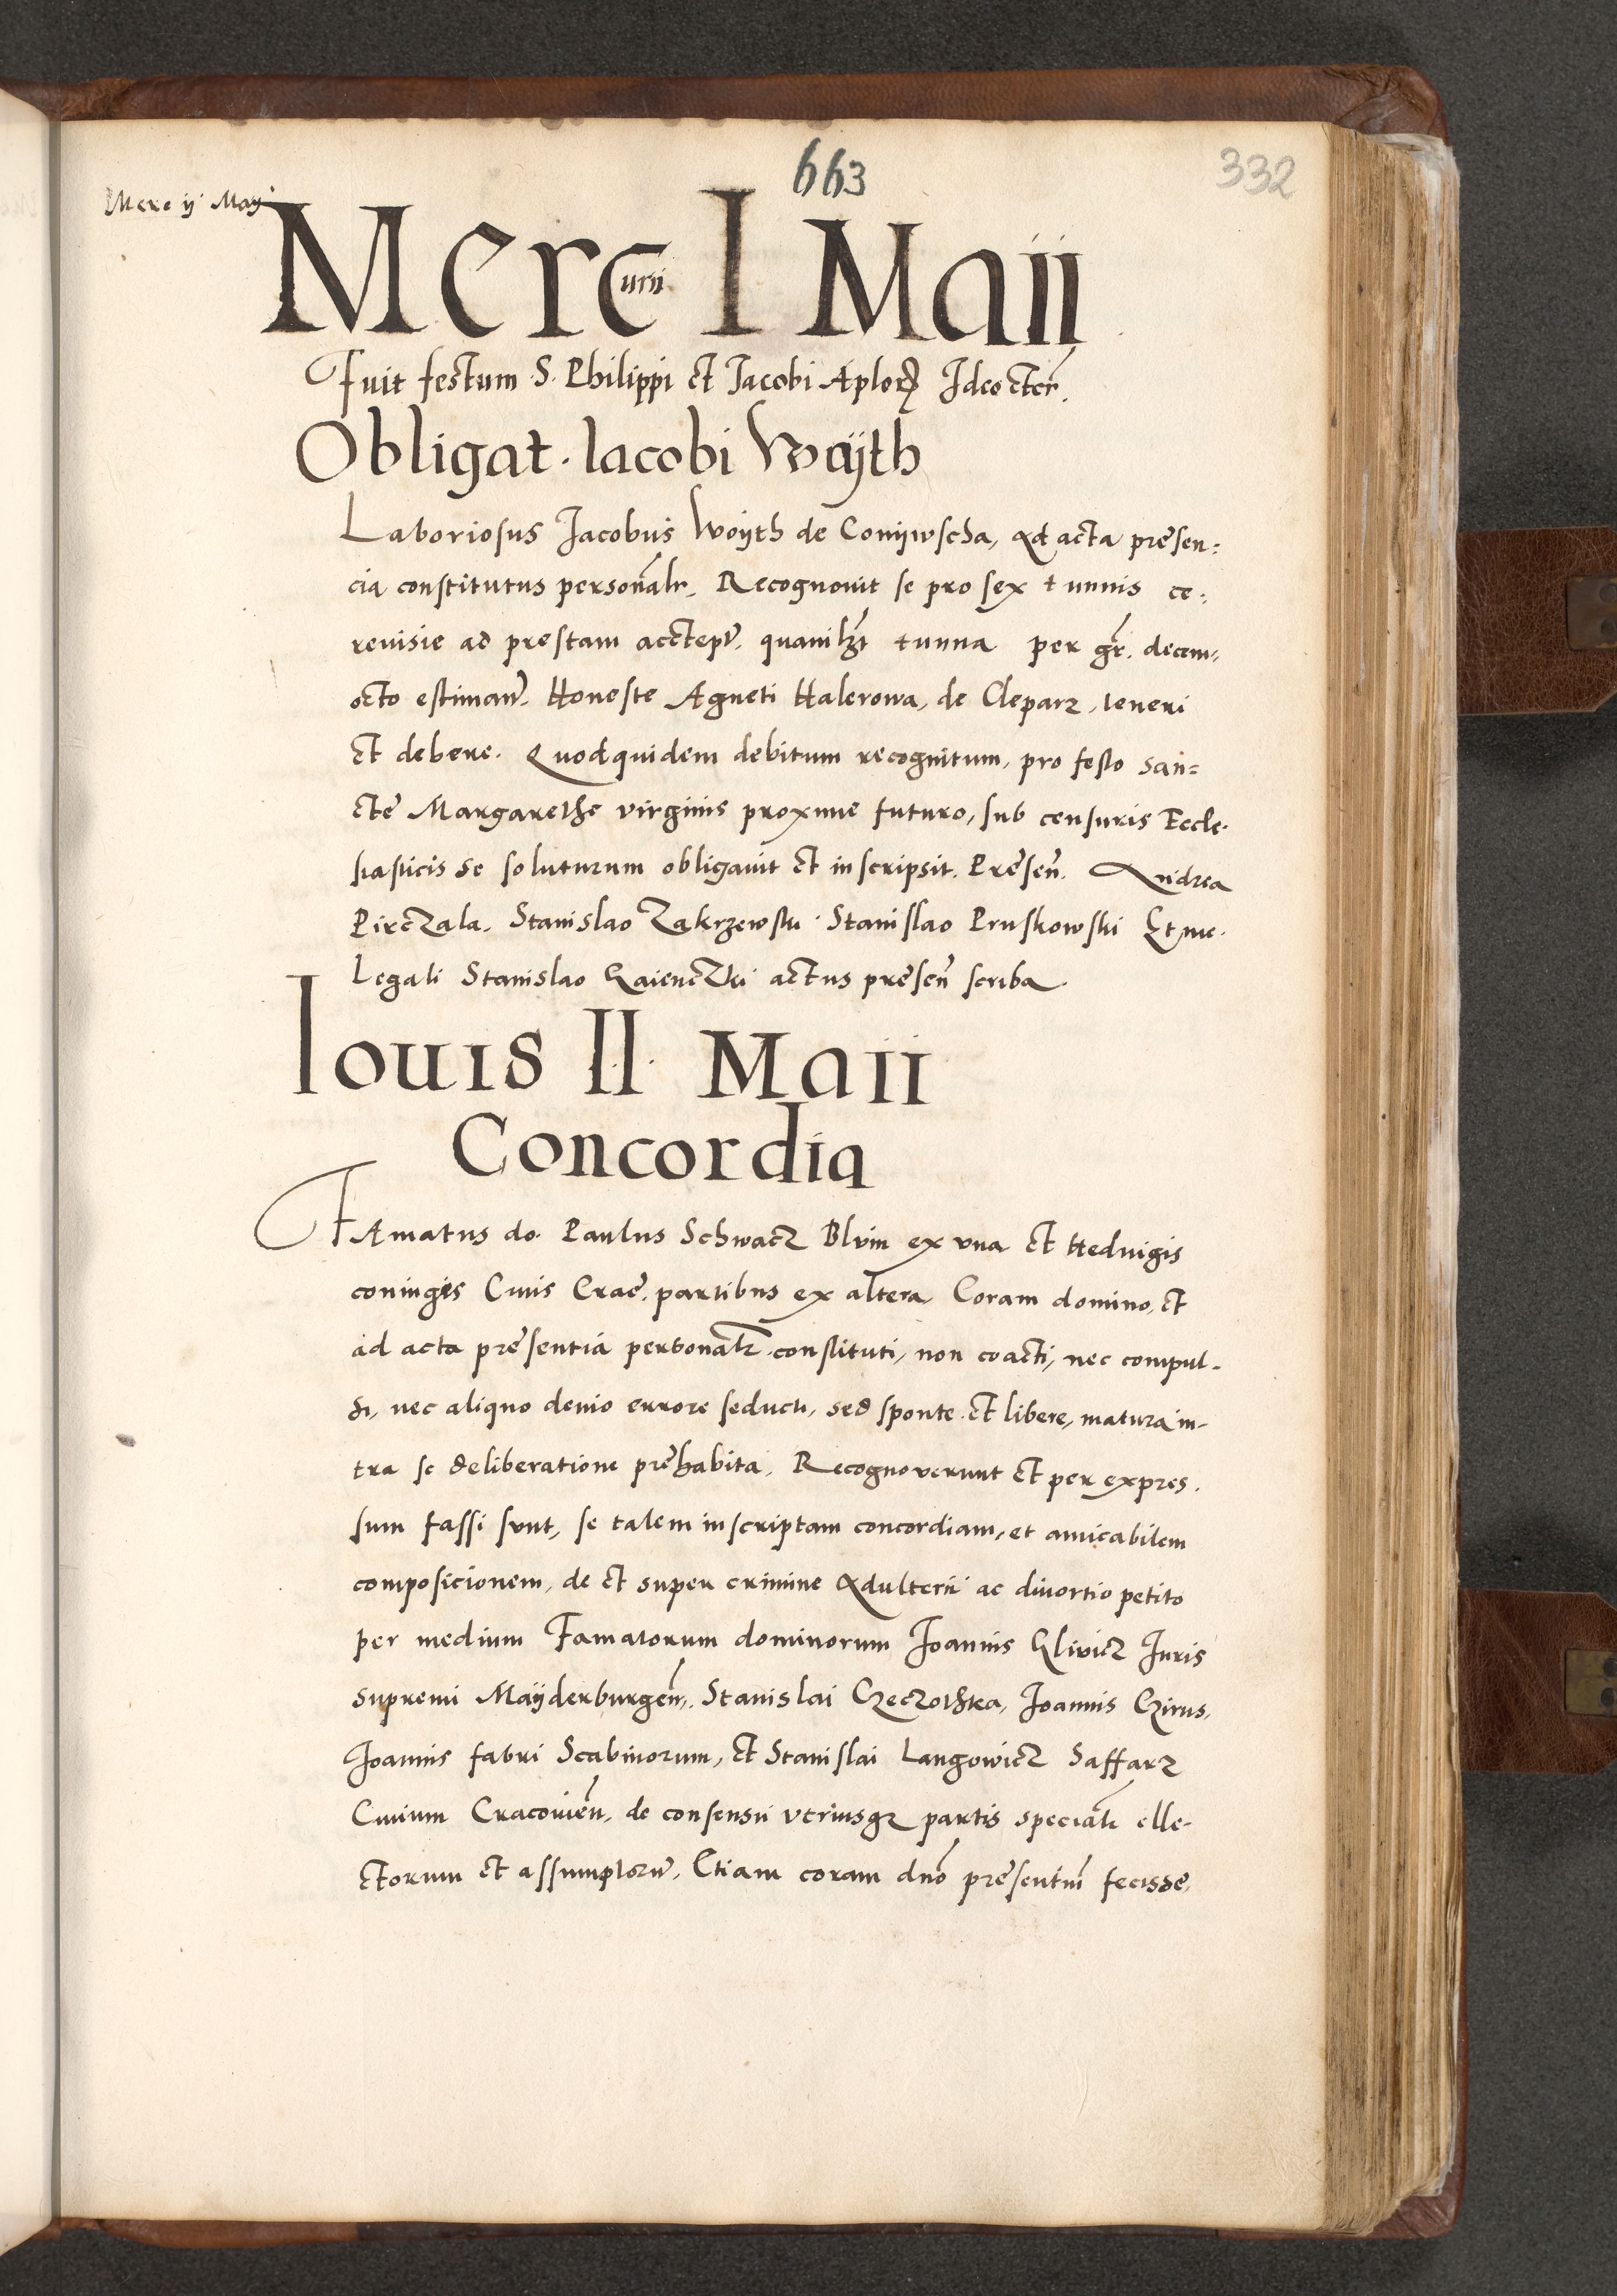 663
332
Merc ij May
Mercurii I Maii
Fuit festum S. Philippi et Jacobi Aplor Ideo
Obligat. Iacobi Woijth
Laboriosus Jacobus Woijth de Conijwscha, Ad acta presen:
cia constitutus personalr. Recognovit se pro sex tunnis ce:
revisie ad prestam acctept. quamlzt tunna per gr. decem,
octo estimant. Honeste Agneti Halerowa, de Cleparz, teneri
et debere. Quodquidem debitum recognitum, pro festo san=
cte Margarethe virginis proxime futuro, sub censuris Eccle.
siasticis se soluturum obligavit et inscripsit. Presen. Andrea
Pirczala, Stanislao Zakrzewski. Stanislao Pruskowski Et me.
Legali Stanislao Gaienczki actus presen scriba.
Iouis II Maii
Concordia
FAmatus do. Paulus Schwacz Blvm ex vna et Heduigis
coniuges Ciuis Crac. partibus ex altera, Coram domino, et
ad acta presentia personalr constituti, non coacti, nec compul-
si, nec aliquo deuio errore seducti, sed sponte et libere, matura in-
tra se deliberatione prehabita, Recognoverunt et per expres.
sum fassi sunt, se talem inscriptam concordiam, et amicabilem
composicionem, de et super crimine Adulterii ac diuortio petito
per medium Famatorum dominorum Joannis Glivicz Juris
supremi Maijderburgen, Stanislai Czeczothka, Joannis Czirus,
Joannis fabri Scabinorum, et Stanislai Langowicz Saffarz
Ciuium Cracouien, de consensu vtriusqz partis specialr elle-
ctorum et assumptoru, Etiam coram dno presentim fecisse,